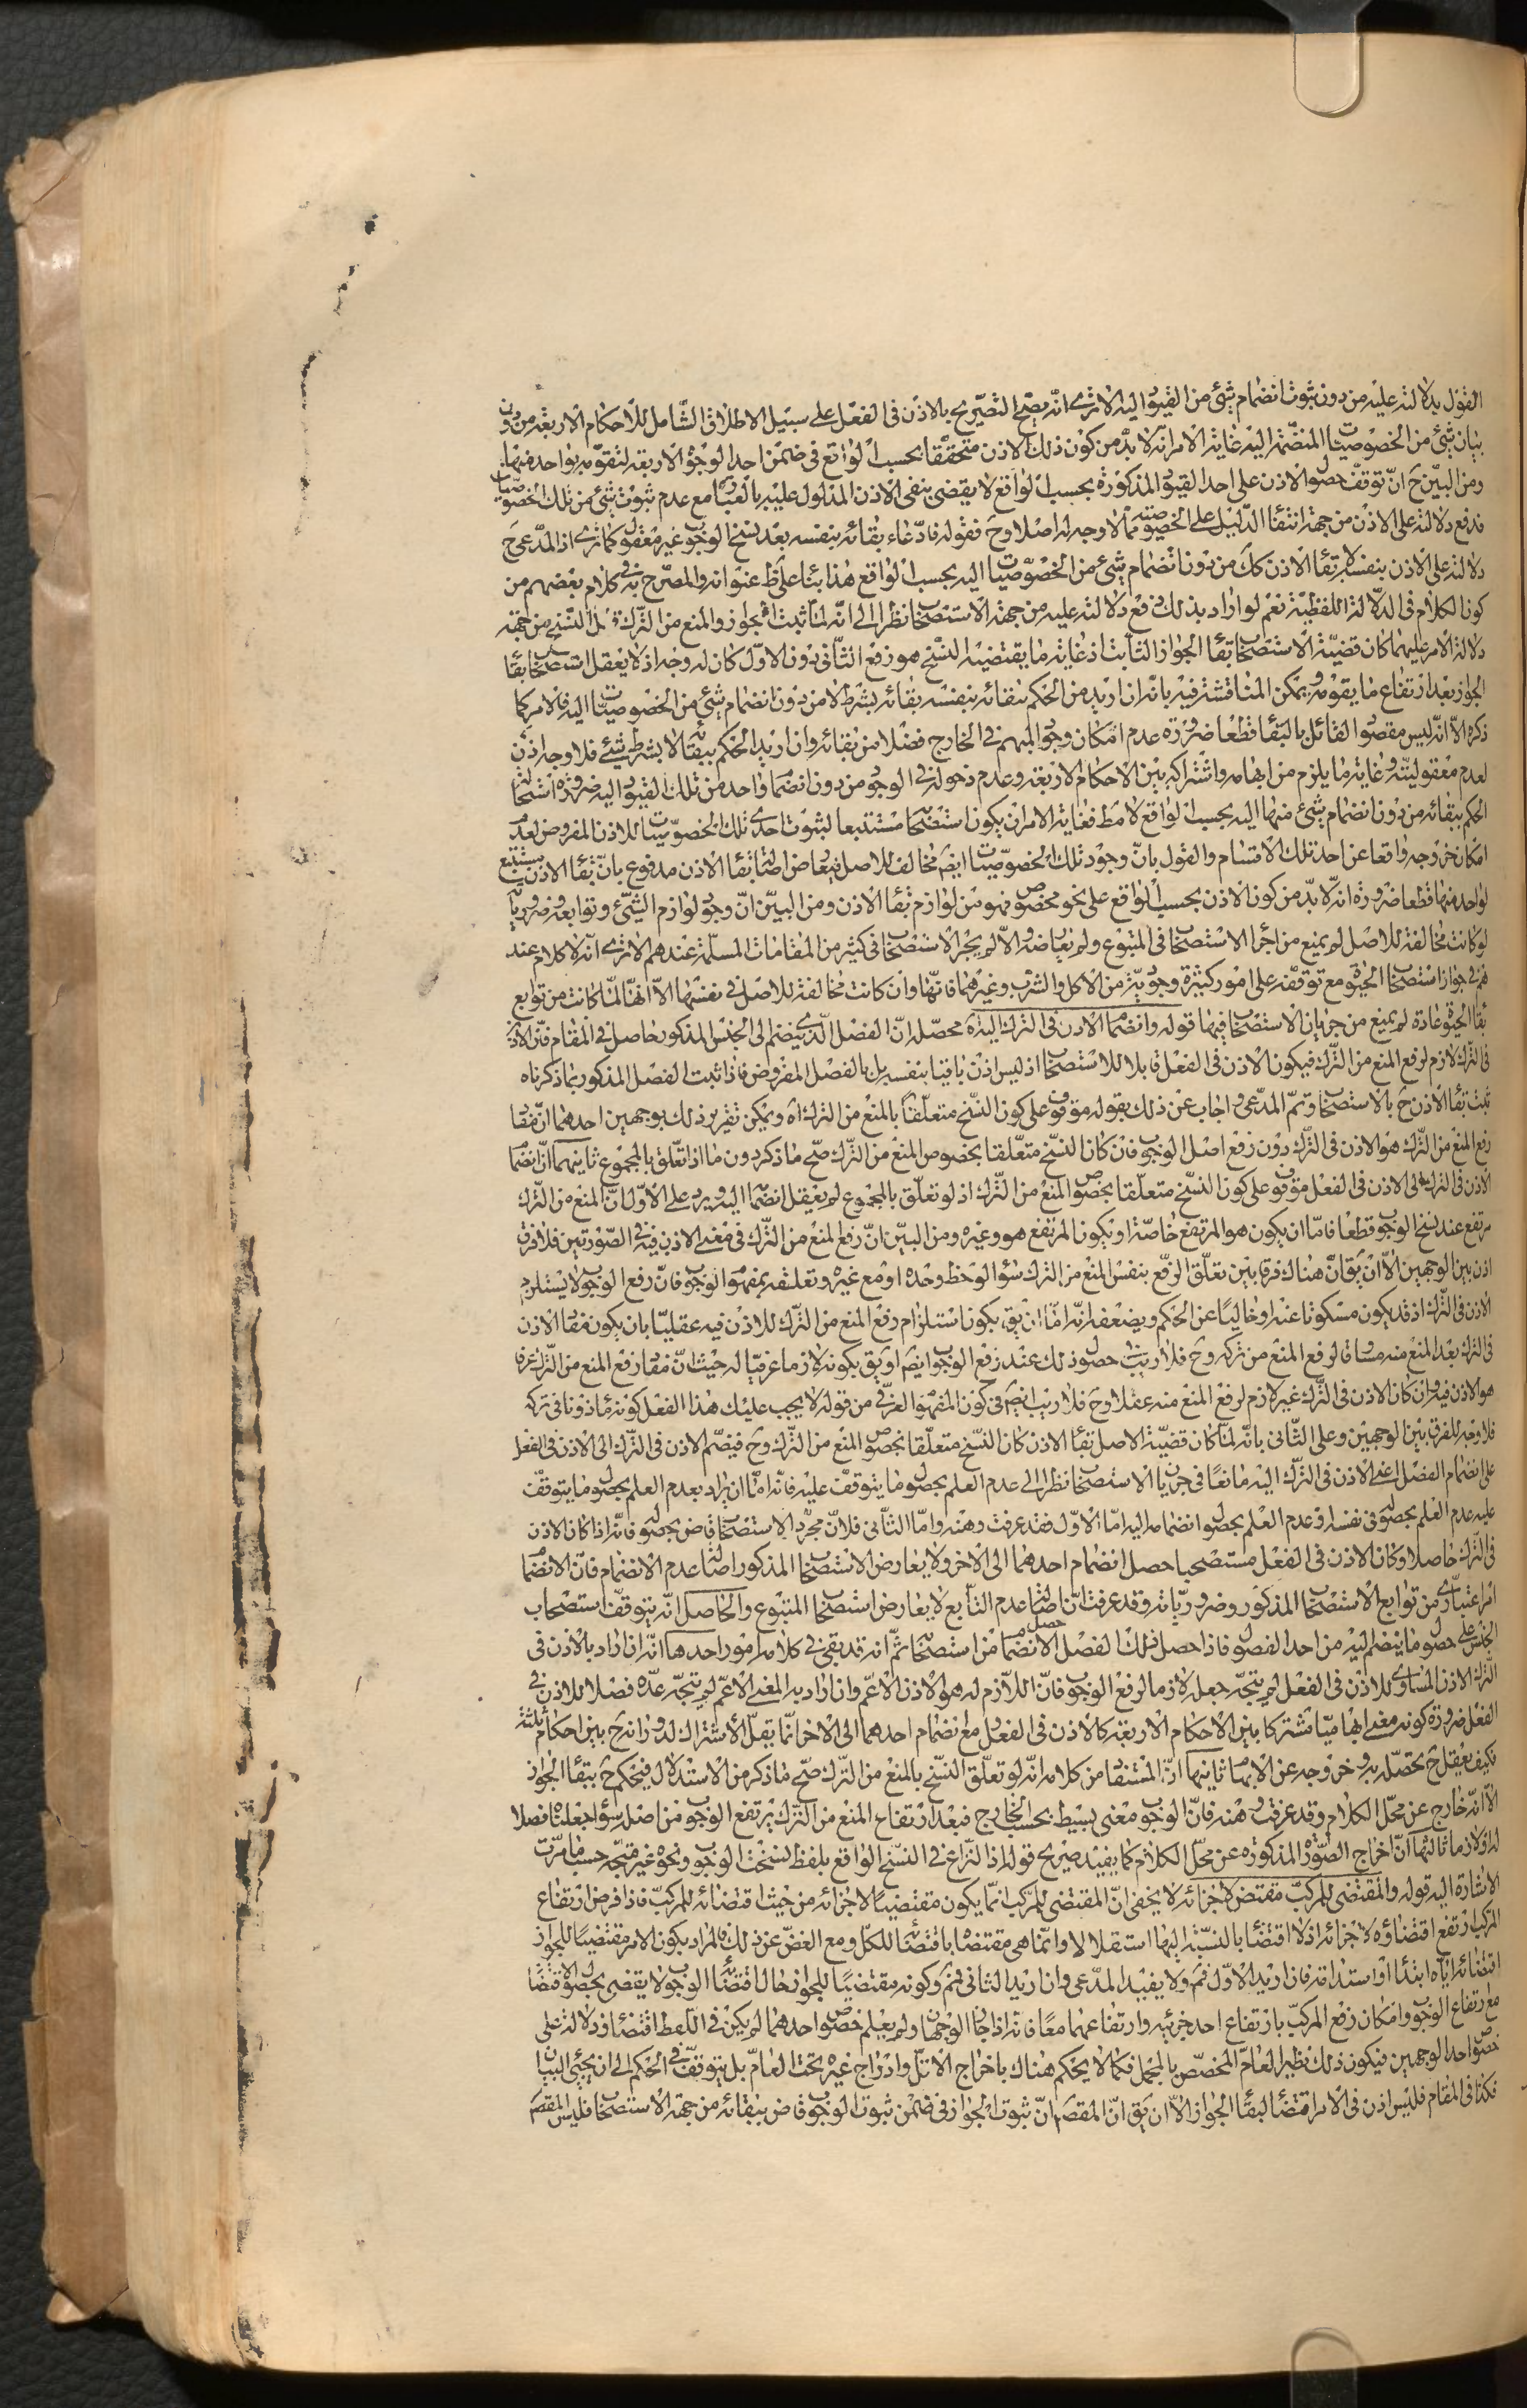 القول بدلالته عليه من دون ثبوت انضمام شئ من القيود اليه الا ترى انّه يصحّ التصريح بالاذن فى الفعل على سبيل الاطلاق الشامل للاحكام الاربعة من دون
بيان شئ من الخصوصيات المنضمّة اليه غاية الامر انه لا بدّ من كون ذلك الاذن متحققا بحسب الواقع فى ضمن احد الوجوه الاربعة لتقوّمه بواحد منها
ومن البيّن ح انّ توقف حصول الاذن على احد القيود المذكورة بحسب الواقع لا يقضى بنفى الاذن المدلول عليه بالعبارة مع عدم ثبوت شئ من تلك الخصوصيات
فدفع دلالته على الاذن من جهة انتفاء الدليل على الخصوصية ممّا لا وجه له اصلا وح فقوله فادّعاء بقائه بنفسه بعد نسخ الوجوب غير معقول كما ترى اذ المدّعى ح
دلالته على الاذن بنفسه لا بقاء الاذن كك من دون انضمام شئ من الخصوصيات اليه بحسب الواقع هذا بناء على ظ عنوانه والمصرّح به فى كلام بعضهم من
كون الكلام فى الدلالة اللفظية نعم لو اراد بذلك دفع دلالته عليه من جهة الاستصحاب نظرا الى انّه لمّا ثبت الجواز والمنع من الترك قبل النسخ من جهة
دلالة الامر عليهما كان قضيّة الاستصحاب بقاء الجواز الثابت اذ غاية ما يقتضيه النسخ هو رفع الثانى دون الاوّل كان له وجه اذ لا يعقل استصحاب بقاء
الجواز بعد ارتفاع ما يقوّمه ويمكن المناقشة فيه بانه ان اريد من الحكم ببقائه بنفسه بقائه بشرط لا من دون انضمام شئ من الخصوصيات اليه فالامر كما
ذكره الّا انّه ليس مقصود القائل بالبقاء قطعا ضرورة عدم امكان وجود المبهم فى الخارج فضلا من بقائه وان اريد الحكم ببقائه لا بشرط شئ فلا وجه اذن
لعدم معقوليته وغاية ما يلزم من ابهامه واشتراكه بين الاحكام الاربعة وعدم دخوله فى الوجود من دون انضمام واحد من تلك القيود اليه ضرورة استحالة
الحكم ببقائه من دون انضمام شئ منها اليه بحسب الواقع لا مط فغاية الامر ان يكون استصحابه مستتبعا لثبوت احدى تلك الخصوصيات للاذن المفروض لعدم
امكان خروجه واقعا عن احد تلك الاقسام والقول بانّ وجود تلك الخصوصيات ايضم مخالف للاصل فيعارض اصالة بقاء الاذن مدفوع بانّ بقاء الاذن يستتبع
لواحد منها قطعا ضرورة انه لا بدّ من كون الاذن بحسب الواقع على نحو مخصوص فهو من لوازم بقاء الاذن ومن البيّن انّ وجود لوازم الشئ وتوابعه ضرورية
لو كانت مخالفة للاصل لم يمنع من اجراء الاستصحاب فى المتبوع ولم يعارضه والّا لم يجر الاستصحاب فى كثير من المقامات المسلّمة عندهم الا ترى انّه لا كلام عند
هم فى جواز استصحاب الحيوة مع توقفه على امور كثيرة وجودية من الاكل والشرب وغيرهما فانها وان كانت مخالفة للاصل فى نفسها الّا انها لمّا كانت من توابع
بقاء الحيوة عادة لم يمنع من جريان الاستصحاب فيها قوله وانضمام الاذن فى الترك اليه اه محصّله انّ الفصل الّذى ينضم الى الجنس المذكور حاصل فى المقام فانّ الاذن
فى الترك لازم لرفع المنع من الترك فيكون الاذن فى الفعل قابلا للاستصحاب اذ ليس اذن باقيا بنفسه بل بالفصل المفروض فاذا ثبت الفصل المذكور بما ذكرناه
ثبت بقاء الاذن ح بالاستصحاب وتمّ المدّعى واجاب عن ذلك بقوله موقوف على كون النسخ متعلّقا بالمنع من الترك اه ويمكن تقرير ذلك بوجهين احدهما انّ مفاد
رفع المنع من الترك هو الاذن فى الترك دون رفع اصل الوجوب فان كان النسخ متعلّقا بخصوص المنع من الترك صحّ ما ذكر دون ما اذا تعلّق بالمجموع ثانيهما انّ انضمام
الاذن فى الترك الى الاذن فى الفعل موقوف على كون النسخ متعلّقا بخصوص المنع من الترك اذ لو تعلّق بالمجموع لم يعقل انضمامه اليه ويرد على الاوّل انّ المنع من الترك
مرتفع عند نسخ الوجوب قطعا فامّا ان يكون هو المرتفع خاصّة او يكون المرتفع هو وغيره ومن البيّن انّ رفع المنع من الترك فى معنى الاذن فيه فى الصورتين فلا فرق
اذن بين الوجهين الّا ان يق انّ هناك فرقا بين تعلّق الرفع بنفس المنع من الترك سواء لوحظ وحده او مع غيره وتعلقه بمفهوم الوجوب فانّ رفع الوجوب لا يستلزم
الاذن فى الترك اذ قد يكون مسكوتا عنه او خاليا عن الحكم ويضعفه انّه امّا ان يق بكون استلزام رفع المنع من الترك للاذن فيه عقليّا بان يكون مفاد الاذن
فى الترك بعد المنع منه مساوقا لرفع المنع من تركه وح فلا ريب فى حصول ذلك عند رفع الوجوب ايضم او يق بكونه لازما عرفيّا له حيث انّ مفاد رفع المنع من الترك عرفا
هو الاذن فيه وان كان الاذن فى الترك غير لازم لرفع المنع منه عقلا وح فلا ريب ايضم فى كون المفهوم العرفى من قوله لا يجب عليك هذا الفعل كونه ماذونا فى تركه
فلا وجه للفرق بين الوجهين وعلى الثانى بانّه لمّا كان قضيّة الاصل بقاء الاذن كان النسخ متعلّقا بخصوص المنع من الترك وح فينضم الاذن فى الترك الى الاذن فى الفعل
على انضمام الفصل اعنى الاذن فى الترك اليه مانعا فى جريان الاستصحاب نظرا الى عدم العلم بحصول ما يتوقف عليه فانّه امّا ان يراد بعدم العلم بحصول ما يتوقف
عليه عدم العلم بحصوله فى نفسه او عدم العلم بحصول انضمامه اليه امّا الاوّل فقد عرفت وهنه وامّا الثانى فلانّ مجرّد الاستصحاب قاض بحصوله فانّه اذا كان الاذن
فى الترك حاصلا وكان الاذن فى الفعل مستصحبا حصل انضمام احدهما الى الاخر ولا يعارض الاستصحاب المذكور اصالة عدم الانضمام فانّ الانضمام
امر اعتبارى من توابع الاستصحاب المذكور وضروريّاته وقد عرفت انّ اصالة عدم التابع لا يعارض استصحاب المتبوع والحاصل انّه يتوقف استصحاب
الجنس على حصول ما ينضم اليه من احد الفصول فاذا حصل ذلك الفصل حصل الانضمام من استصحابه ثمّ انه قد بقى فى كلامه امور احدها انّه ان اراد بالاذن فى
الترك الاذن المساوى للاذن فى الفعل لم يتّجه جعله لازما لرفع الوجوب فانّ اللازم له هو الاذن الاعمّ وان اراد به المعنى الاعمّ لم يتّجه عدّه فصلا للاذن فى
الفعل ضرورة كونه معنى ابهاميّا مشتركا بين الاحكام الاربعة كالاذن فى الفعل ومع انضمام احدهما الى الاخر انّما يقلّ الاشتراك لدورانه ح بين احكام ثلثة
فكيف يعقل ح تحصّله به وخروجه عن الابهام ثانيها انّ المستفاد من كلامه انّه لو تعلّق النسخ بالمنع من الترك صحّ ما ذكر من الاستدلال فيحكم ح ببقاء الجواز
الّا انّه خارج عن محلّ الكلام وقد عرفت وهنه فانّ الوجوب معنى بسيط بحسب الخارج فبعد ارتفاع المنع من الترك يرتفع الوجوب من اصله سواء جعلناه فصلا
له او لازما ثالثها انّ اخراج الصورة المذكورة عن محلّ الكلام كما يفيده صريح قوله اذ النزاع فى النسخ الواقع بلفظ نسخت الوجوب ونحوه غير متّجه حسبما مرّت
الاشارة اليه قوله والمقتضى للمركّب مقتض لاجزائه لا يخفى انّ المقتضى للمركّب انّما يكون مقتضيا لاجزائه من حيث اقتضائه للمركّب فاذا فرض ارتفاع
المركّب ارتفع اقتضاؤه لاجزائه اذ لا اقتضاء بالنسبة اليها استقلالا وانّما هى مقتضاة باقتضائه للكلّ ومع الغضّ عن ذلك فالمراد بكون الامر مقتضيا للجواز
اقتضائه ايّاه ابتداء او استدامة فان اريد الاوّل فمم ولا يفيد المدّعى وان اريد الثانى فمم وكونه مقتضيا للجواز حال اقتضائه الوجوب لا يقضى بحصول الاقتضاء
مع ارتفاع الوجوب وامكان رفع المركّب بارتفاع احد جزئيه وارتفاعهما معا فانه اذا جاز الوجهان ولم يعلم خصوص احدهما لم يكن فى اللفظ اقتضاء ودلالة على
خصوص احد الوجهين فيكون ذلك نظير العامّ المخصّص بالمجمل فكما لا يحكم هناك باخراج الاقلّ وادراج غيره تحت العامّ بل يتوقف فى الحكم الى ان يجئ البيان
فكذا فى المقام فليس اذن فى الامر اقتضاء لبقاء الجواز الّا ان يق انّ المقصم انّ ثبوت الجواز فى ضمن ثبوت الوجوب قاض ببقائه من جهة الاستصحاب فليس المقصم